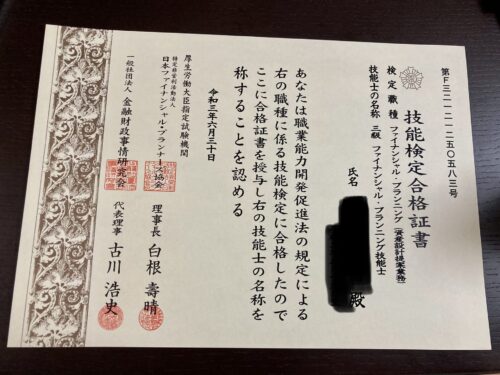 第F三二一一二五〇五八三号
技能検定合格証書
検定職種 ファイナンシャル・プランニング(資産設計提案業務)
技能士の名称 三級 ファイナンシャル・プランニング技能士
氏名
殿
あなたは職業能力開発促進法の規定による
右の職種に係る技能検定に合格したので
ここに合格証書を授与し右の技能士の名称を
称することを認める
令和三年六月三十日
厚生労働大臣指定試験機関
特定非営利活動法人
日本ファイナンシャル・プランナーズ協会
理事長 白根壽晴
一般社団法人 金融財政事情研究会
代表理事 古川浩史